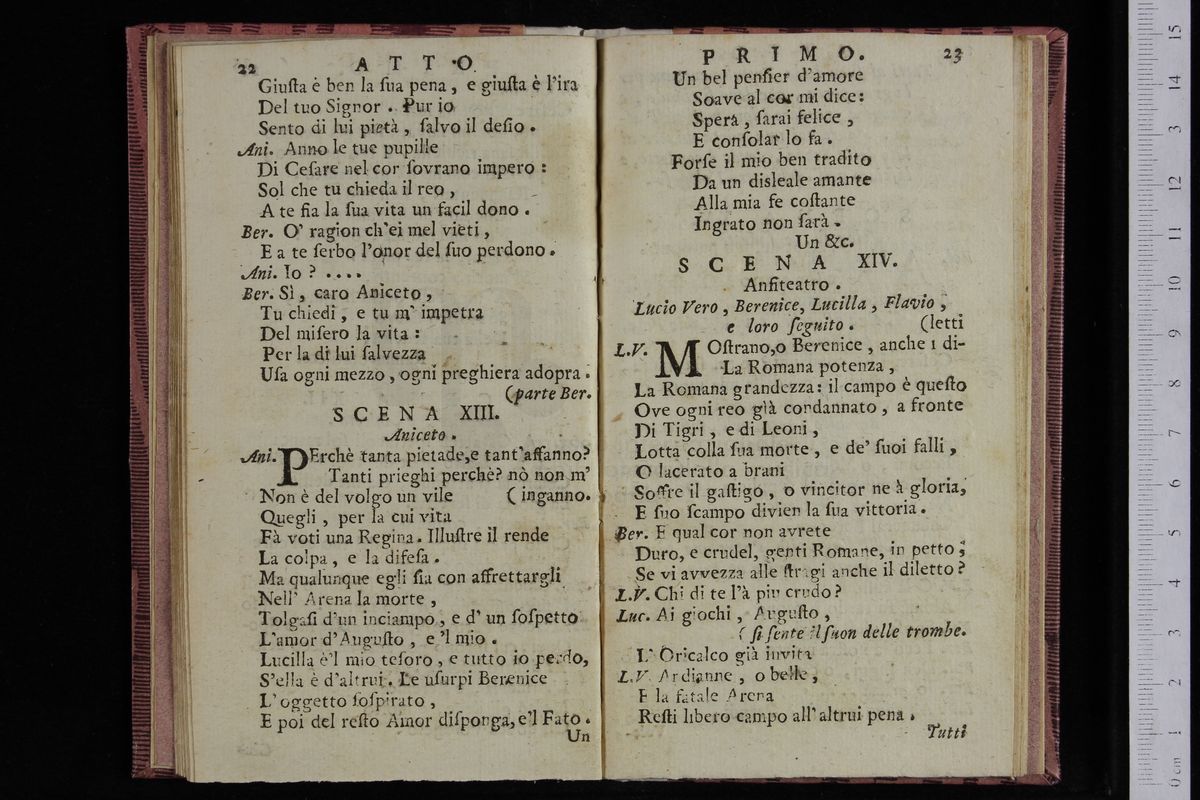 22 ATTO
Giuſta è ben la ſua pena , e giuſta è l'ira
Del tuo Signor . Pur io
Sento di lui pietà , ſalvo il deſio .
Ani. Anno le tue pupille
Di Ceſare nel cor ſovrano impero :
Sol che tu chieda il reo ,
A te fia la ſua vita un facil dono .
Ber. O' ragion ch'ei mel vieti ,
E a te ſerbo l'onor del ſuo perdono .
Ani. Io ? ....
Ber. Sì , caro Aniceto ,
Tu chiedi , e tu m' impetra
Del miſero la vita :
Per la di lui ſalvezza
Uſa ogni mezzo , ogni preghiera adopra .
(parte Ber.
SCENA XIII.
Aniceto .
Ani. PErchè tanta pietade,e tant'affanno?
Tanti prieghi perchè? nò non m'
Non è del volgo un vile ( inganno.
Quegli , per la cui vita
Fà voti una Regina. Illuſtre il rende
La colpa , e la difeſa .
Ma qualunque egli ſia con affrettargli
Nell' Arena la morte ,
Tolgaſi d'un inciampo , e d' un ſoſpetto
L'amor d'Auguſto , e 'l mio .
Lucilla è'l mio teſoro , e tutto io perdo,
S'ella è d'altrui . Le uſurpi Berenice
L'oggetto ſoſpirato ,
E poi del reſto Amor diſponga, e'l Fato .
Un
PRIMO. 23
Un bel penſier d'amore
Soave al cor mi dice:
Spera , ſarai felice ,
E conſolar lo fa .
Forſe il mio ben tradito
Da un disleale amante
Alla mia fe coſtante
Ingrato non ſarà .
Un &c.
SCENA XIV.
Anfiteatro .
Lucio Vero , Berenice, Lucilla , Flavio ,
e loro ſeguito . (letti
L.V. MOſtrano,o Berenice , anche i di-
La Romana potenza ,
La Romana grandezza: il campo è queſto
Ove ogni reo già condannato , a fronte
Di Tigri , e di Leoni ,
Lotta colla ſua morte , e de' ſuoi falli ,
O lacerato a brani
Soffre il gaſtigo , o vincitor ne à gloria,
E ſuo ſcampo divien la ſua vittoria .
Ber. E qual cor non avrete
Duro, e crudel, genti Romane, in petto ;
Se vi avvezza alle ſtragi anche il diletto ?
L.V. Chi di te l'à più crudo ?
Luc. Ai giochi , Auguſto ,
( ſi ſente il ſuon delle trombe.
L' Oricalco già invita
L.V. Ardianne , o belle ,
E la fatale Arena
Reſti libero campo all' altrui pena .
Tutti
0 cm 1 2 3 4 5 6 7 8 9 10 11 12 13 14 15